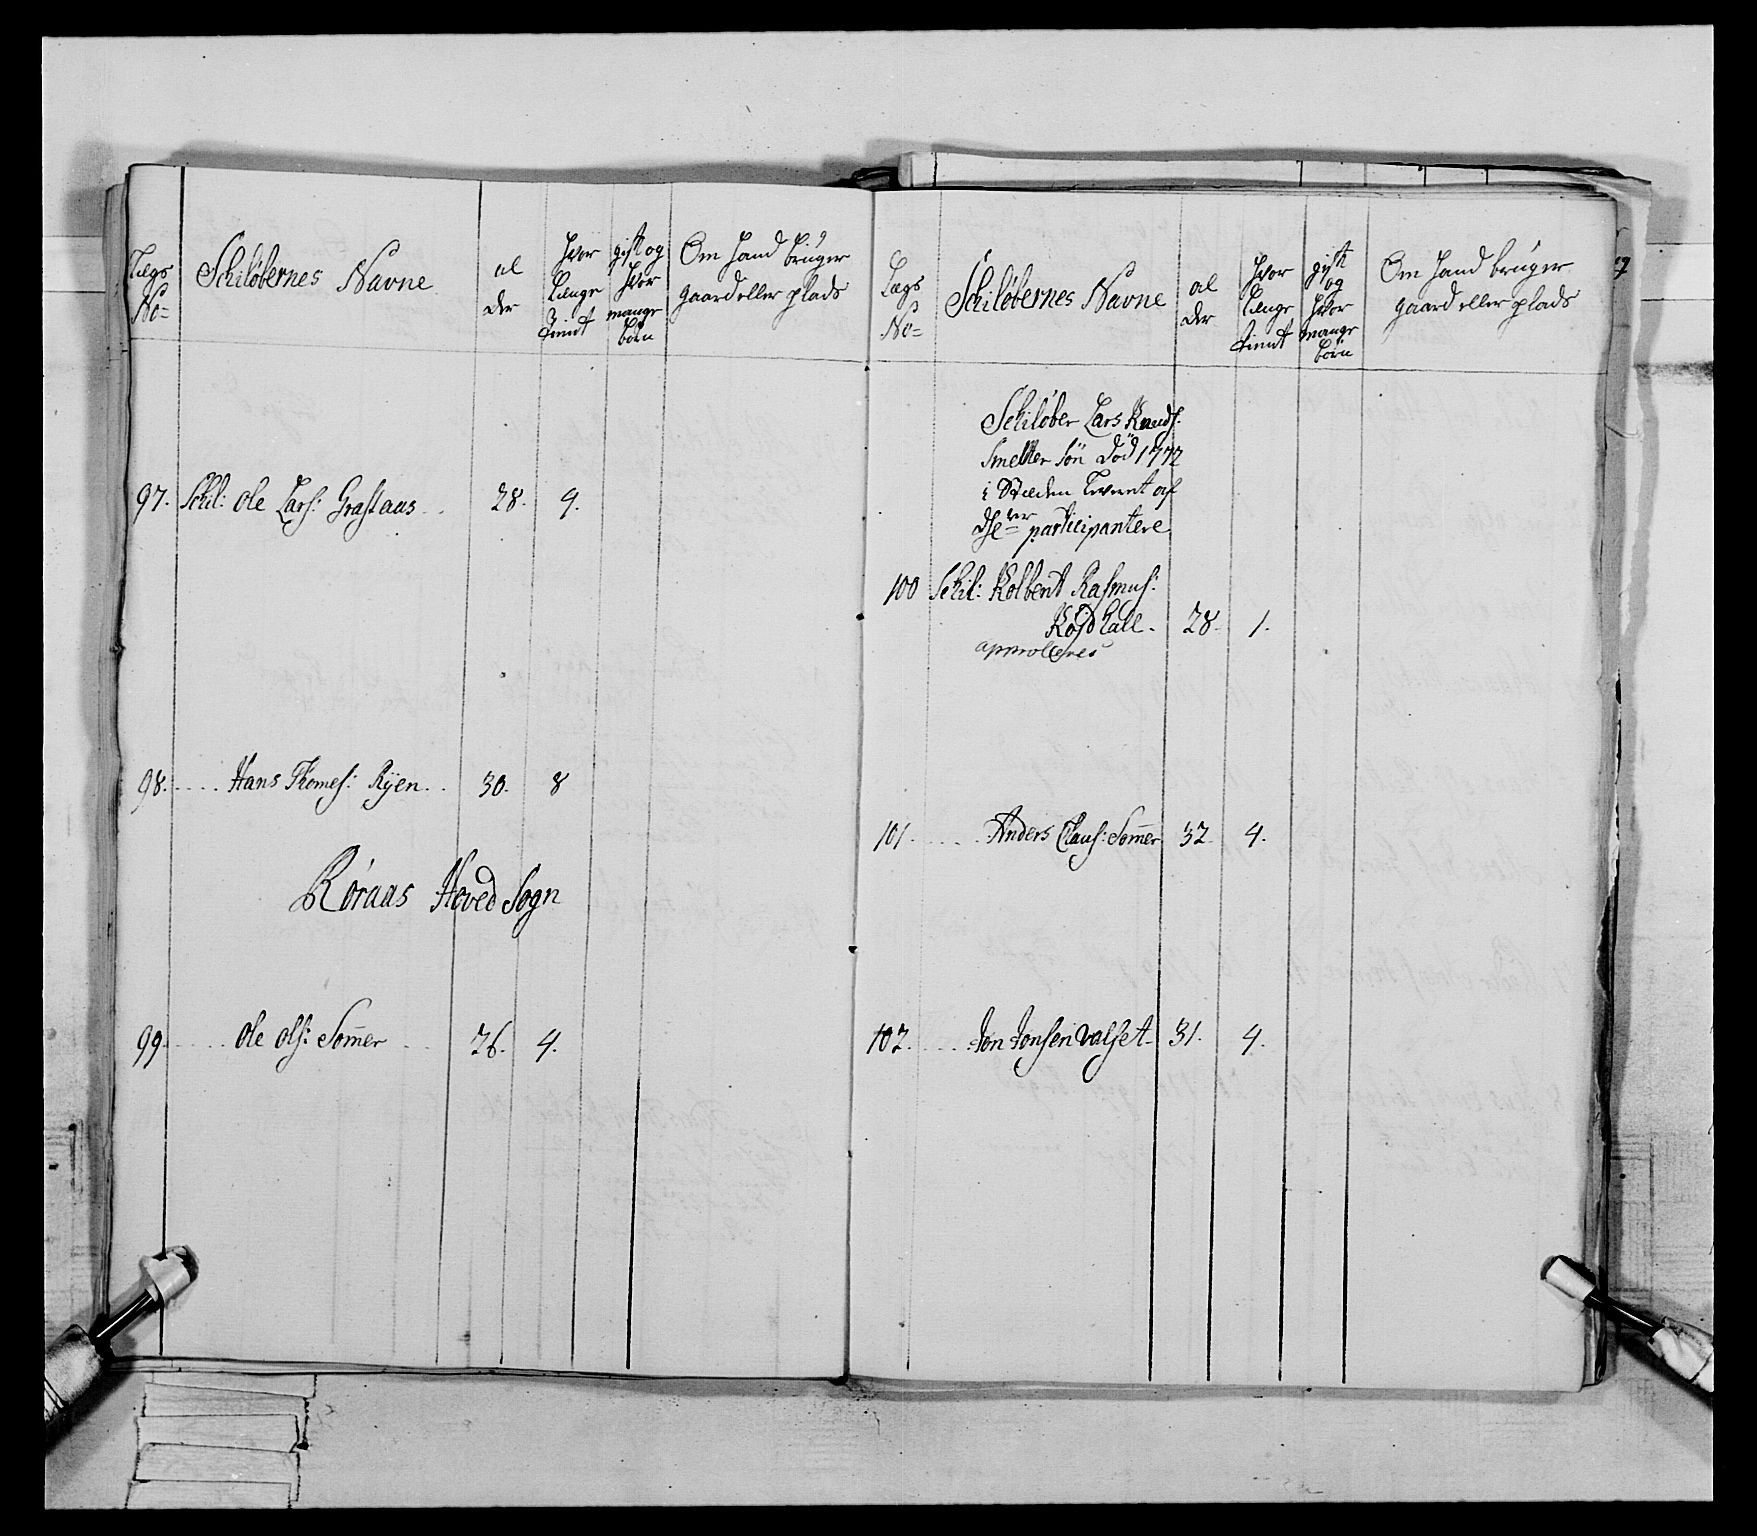 Lægs No=
Schiløbernes Navne
al der
hvor længe tient
gift og hvor mange børn
Om hand brúger gaard eller plads
97. Schil: Ole Lars: Graslaas 28. 9.
98. Hans Thomes: Rÿen 30. 8
Røraas Hoved Sogn
99. Ole Ols: Som̄er 26. 4.
Lægs No=
Schiløbernes Navne
al der
hvor længe tient
gift og hvor mange børn
Om hand brúger gaard eller plads
Schiløber Lars Knuds:
Smelter søn död 1772
i Stæden af
participantere
100 Schil: Kolbent Rasmus:
28. 1.
approberes
101. Anders Claus: Som̄er 32. 4.
102. Jon Jonsen Valset 31. 4.